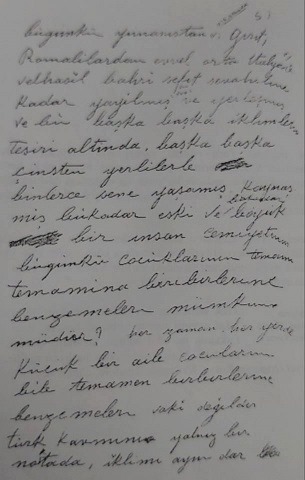 bugünkü yunanistan, Girit,
Romalılardan evvel orta İtalya,
velhasıl bahri sefit sevahiline
kadar yayılmış ve yerleşmiş
ve bin başka başka iklimlerin
tesiri altında, başka başka
cinsten yerlilerle
binlerce sene yaşamış, kaynaş
mış bu kadar eski ve büyük
bir insan cemiyetinin
bugünkü çocuklarının tamamı
tamamına birbirlerine
benzemeleri mümkün
müdür? her zaman her yerde
Küçük bir aile çocukların
bile tamamen birbirlerine
benzemeleri vaki değildir
türk kavminin yalnız bir
noktada, iklimi aynı dar